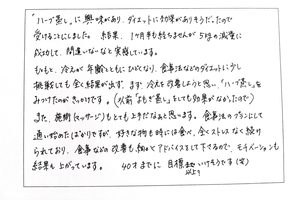 "ハーブ蒸し"に興味があり、ダイエットに効果がありそうだったので
受けることにしました。 結果、1ヶ月半も経ちませんが 5kgの減量に
成功して、間違いなーなと実感しています。
もともと、冷えが年齢とともにひどくなり、食事法などのダイエットに少し
挑戦しても全く結果が出ず、まず冷えを改善しようと思い、"ハーブ蒸し"を
みつけたのがきっかけです。(以前"よもぎ蒸し"をしても効果がなかったので)
また、施術(マッサージ)もとても上手だなぁと思います。食事法のプランにして
通い始めたばかりですが、好きな物も時には食べ、全くストレスなく続け
られており、食事などの改善も細かくアドバイスをして下さるので、モチベーションも
結果も上がっています。 40才までに 目標 以上 いけそうです(笑)